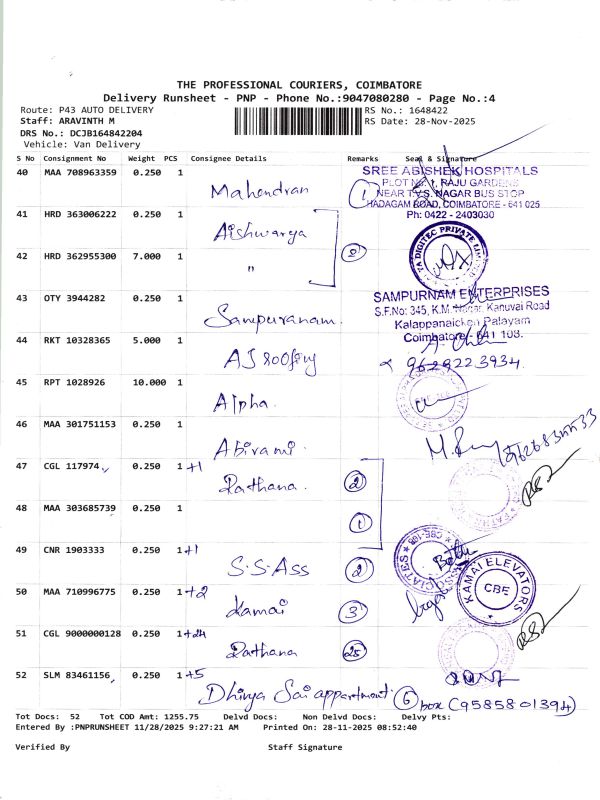 THE PROFESSIONAL COURIERS, COIMBATORE
Delivery Runsheet - PNP - Phone No.:9047080280 - Page No.:4
Route: P43 AUTO DELIVERY RS No.: 1648422
Staff: ARAVINTH M RS Date: 28-Nov-2025
DRS No.: DCJB164842204
Vehicle: Van Delivery
S No Consignment No Weight PCS Consignee Details Remarks Seal & Signature
40 MAA 708963359 0.250 1 Mahendran 1
SREE ABISHEK HOSPITALS
PLOT No. 1, RAJU GARDENS
NEAR T.V.S. NAGAR BUS STOP
HADAGAM ROAD, COIMBATORE - 641 025
Ph: 0422 - 2403030
41 HRD 363006222 0.250 1 Aishwarya
DIGITEC PRIVATE
42 HRD 362955300 7.000 1 "
43 OTY 3944282 0.250 1 Sampuranam.
SAMPURNAM ENTERPRISES
S.F.No: 345, K.M. Nagar, Kanuvai Road
Kalappanaicken Palayam
Coimbatore - 641 108.
44 RKT 10328365 5.000 1 AJ roofing
9629223934
45 RPT 1028926 10.000 1 Alpha
46 MAA 301751153 0.250 1 Abirami
47 CGL 117974 0.250 1+1 Rathana 2
48 MAA 303685739 0.250 1 1
49 CNR 1903333 0.250 1+1 S.S.Ass 2
50 MAA 710996775 0.250 1+2 Kamai 3
KAMAI ELEVATORS
CBE
51 CGL 9000000128 0.250 1+24 Rathana 25
52 SLM 83461156 0.250 1+5 Dhivya Sai appartment 6 box (9585801394)
Tot Docs: 52 Tot COD Amt: 1255.75 Delvd Docs: Non Delvd Docs: Delvy Pts:
Entered By :PNPRUNSHEET 11/28/2025 9:27:21 AM Printed On: 28-11-2025 08:52:40
Verified By Staff Signature